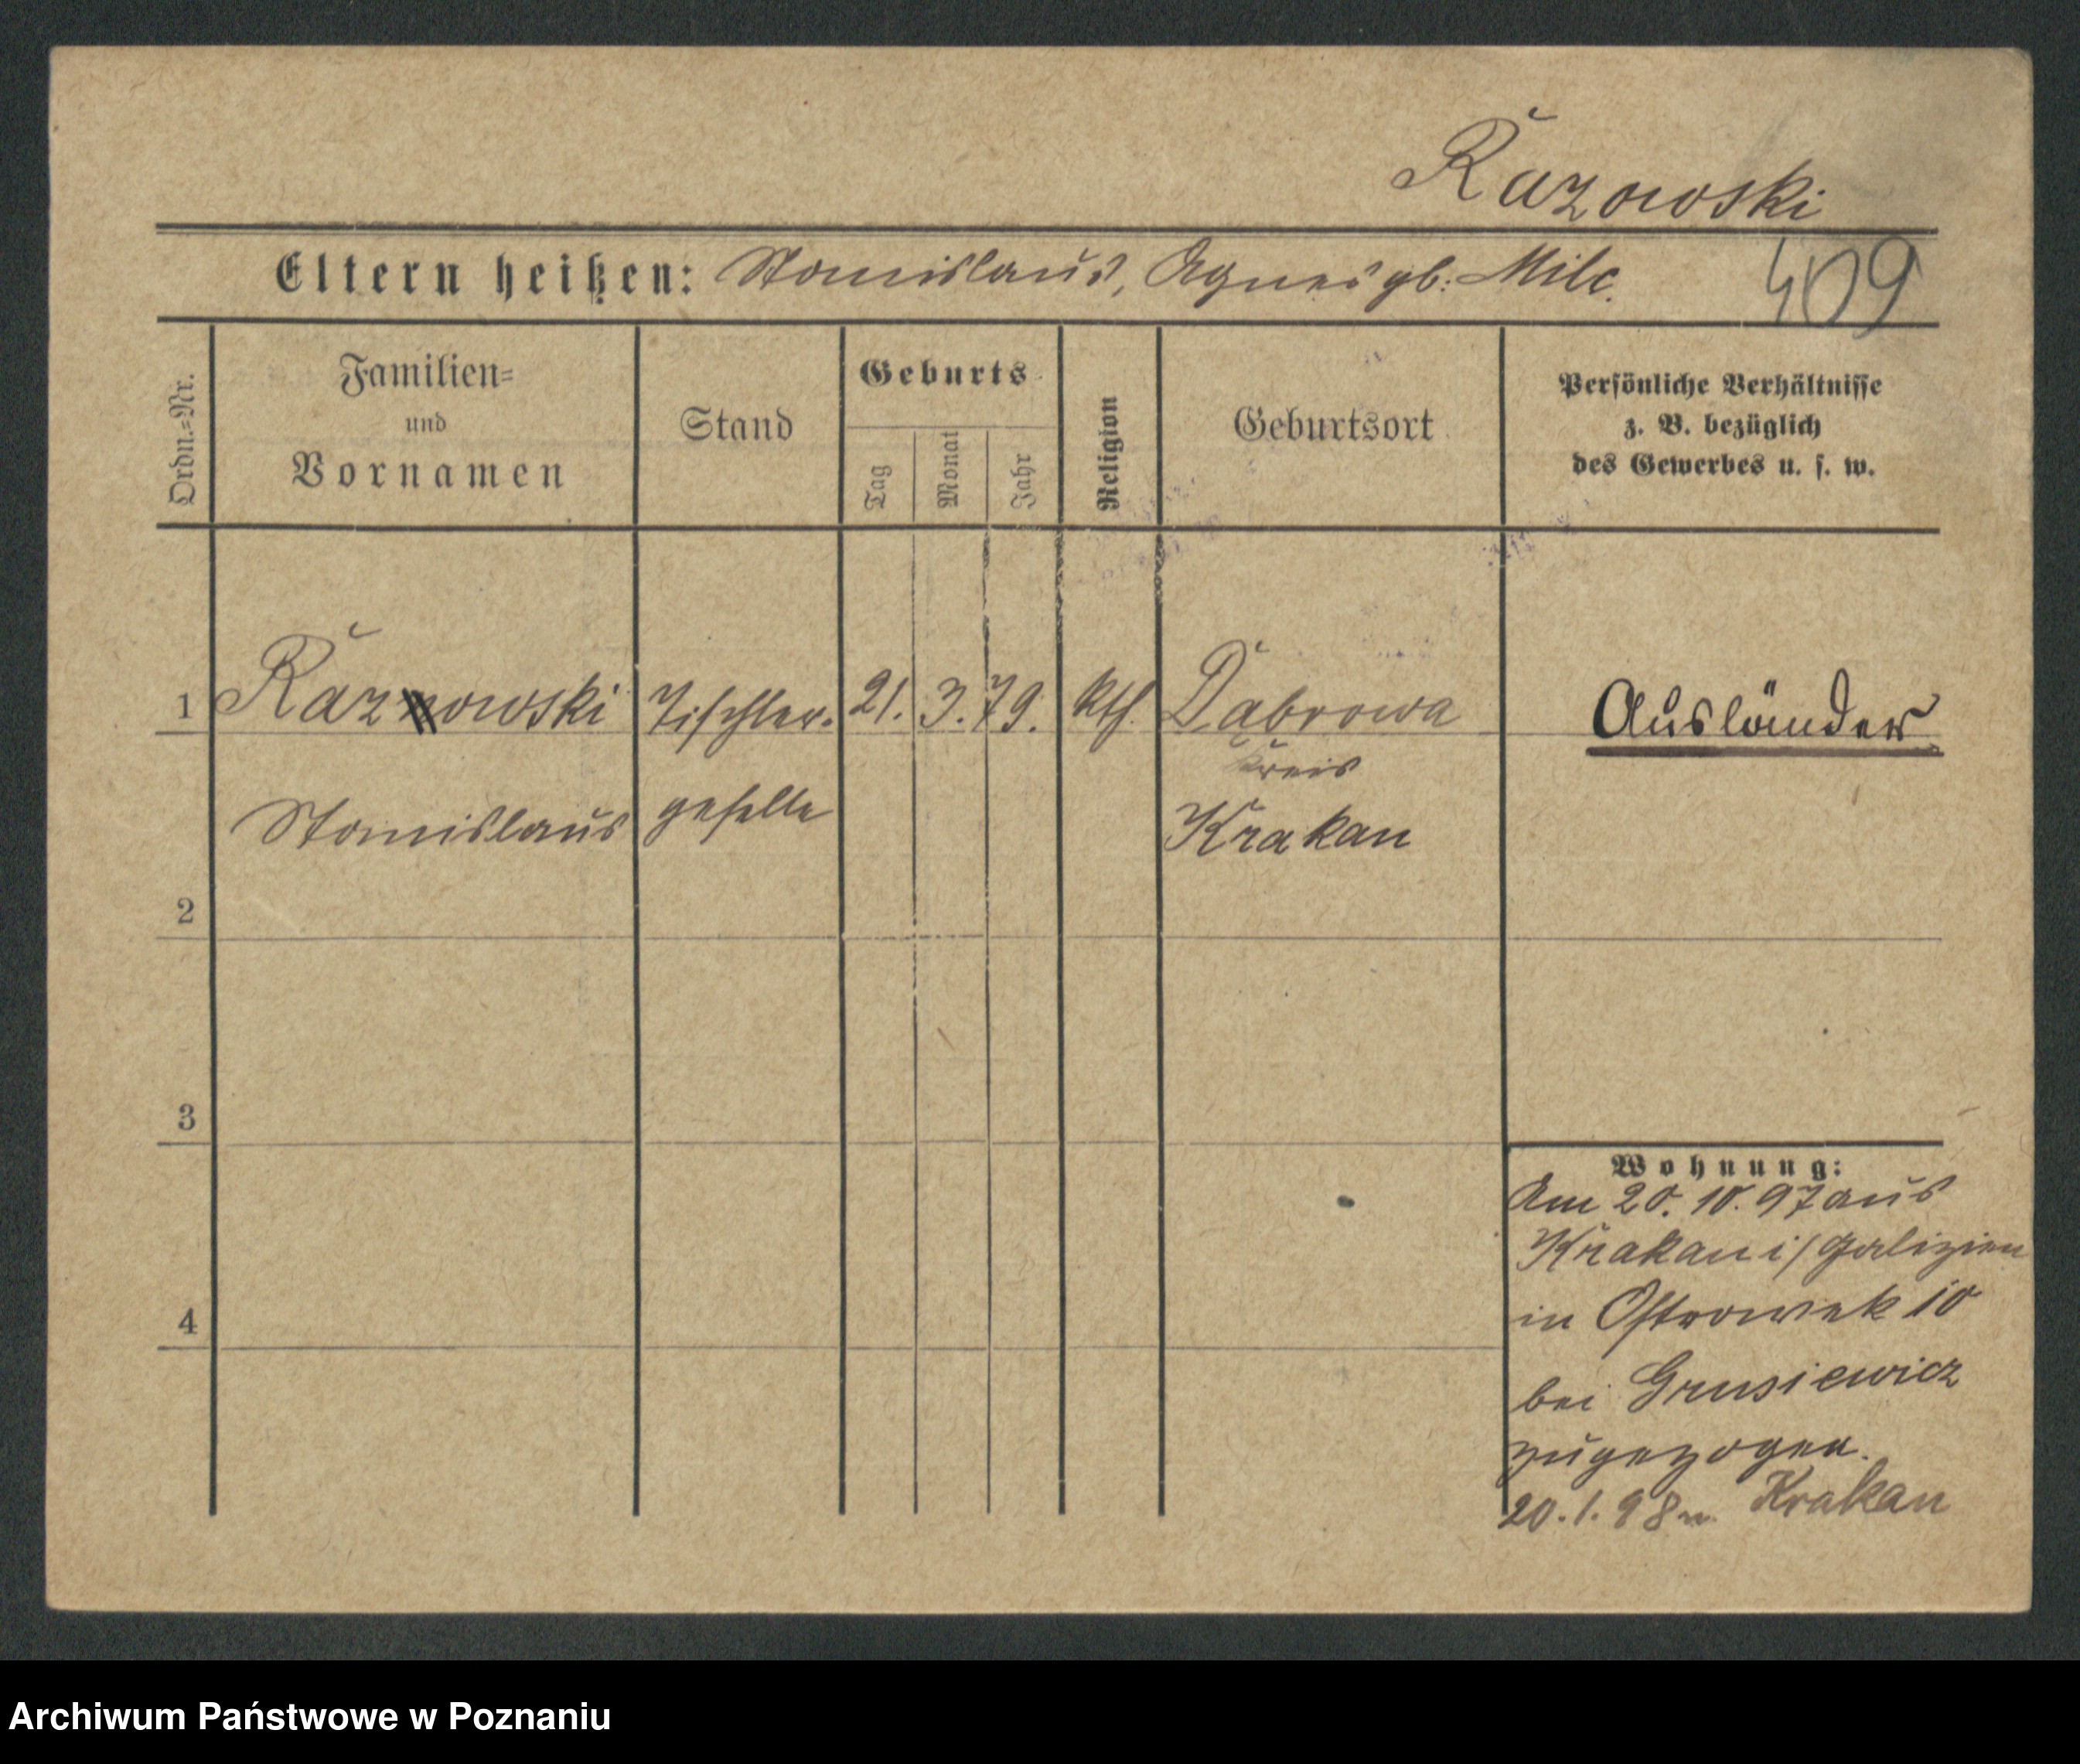 Razowski
Eltern heißen: Stanislaus, Agnes gb: Milc.
409
Ordn.=Nr.
Familien=
und
Vornamen
Stand
Geburts
Tag
Monat
Jahr
Religion
Geburtsort
Persönliche Verhältnisse
z. B. bezüglich
des Gewerbes u. s. w.
1 Razowski Tischler- 21. 3. 79. kth. Dąbrowa Ausländer
Kreis
Stanislaus geselle Krakau
2
3
4
Wohnung:
Am 20. 10. 97 aus
Krakau i/ Galizien
in Ostrowek 10
bei Grusiewicz
zugezogen.
20. 1. 98 n. Krakau
Archiwum Państwowe w Poznaniu